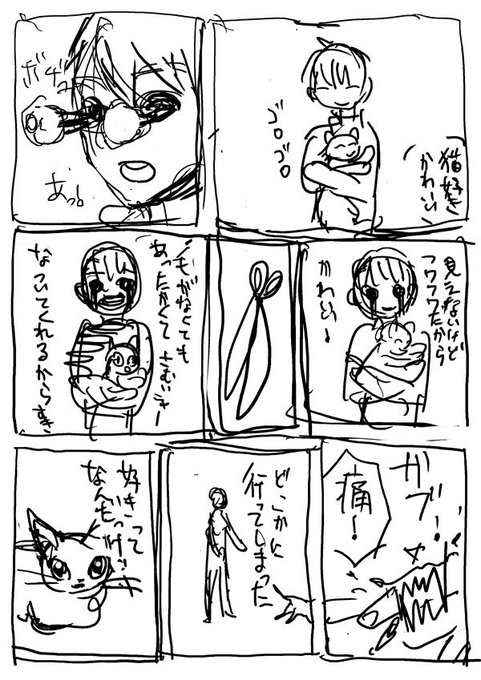 猫好き
かわいい
ゴロゴロ
あっ。
見えないけど
フワフワだから
かわいー
毛がなくても
あったかくて さむいニャー
なついてくれるからすき
ガブ!
痛!
どこかに
行ってしまった
好きって
なんだっけ…